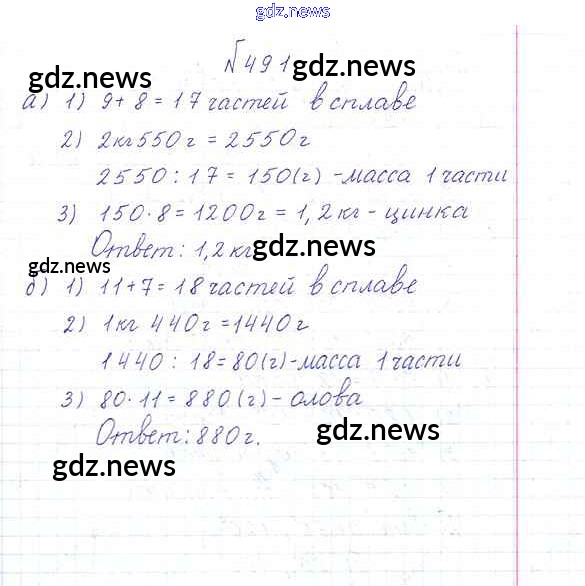 gdz.news
№491
gdz.news gdz.news
а) 1) 9+8=17 частей в сплаве
2) 2кг550г = 2550г
2550:17=150(г) -масса 1 части
3) 150·8=1200г=1,2кг-цинка
Ответ: 1,2кг
gdz.news
gdz.news
б) 1) 11+7=18 частей в сплаве
2) 1кг 440г=1440г
1440:18=80(г)-масса 1 части
3) 80·11=880(г)-олова
Ответ:880г.
gdz.news
gdz.news